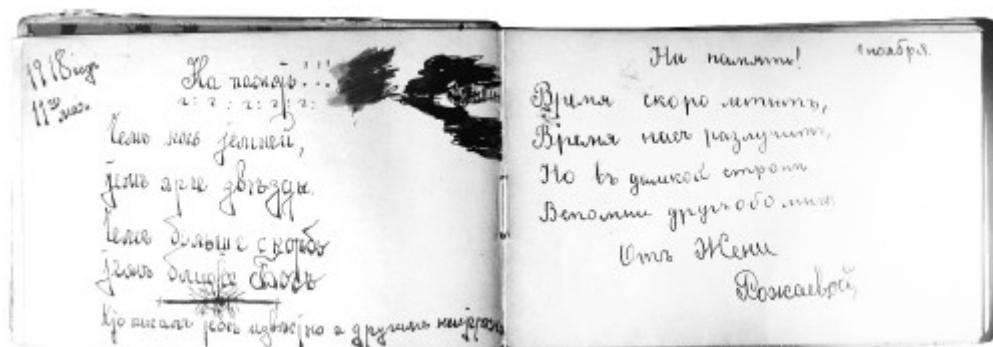 1918 годъ
11го мая.
На память!!!
Чемъ ночь темней,
темъ ярче звѣзды.
Чемъ больше скорбь
темъ ближе Богъ
Кто писалъ тебѣ извѣстно а другимъ
На память!
1 ноября.
Время скоро летитъ,
Время насъ разлучитъ,
Но въ далекой сторонѣ
Вспомни другъ обо мнѣ
Отъ Жени
Рожаевой